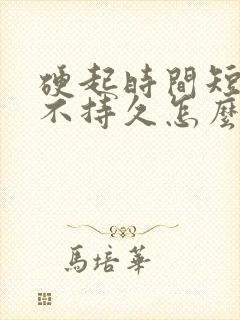 硬起時間短
不持久怎麼
馬培華